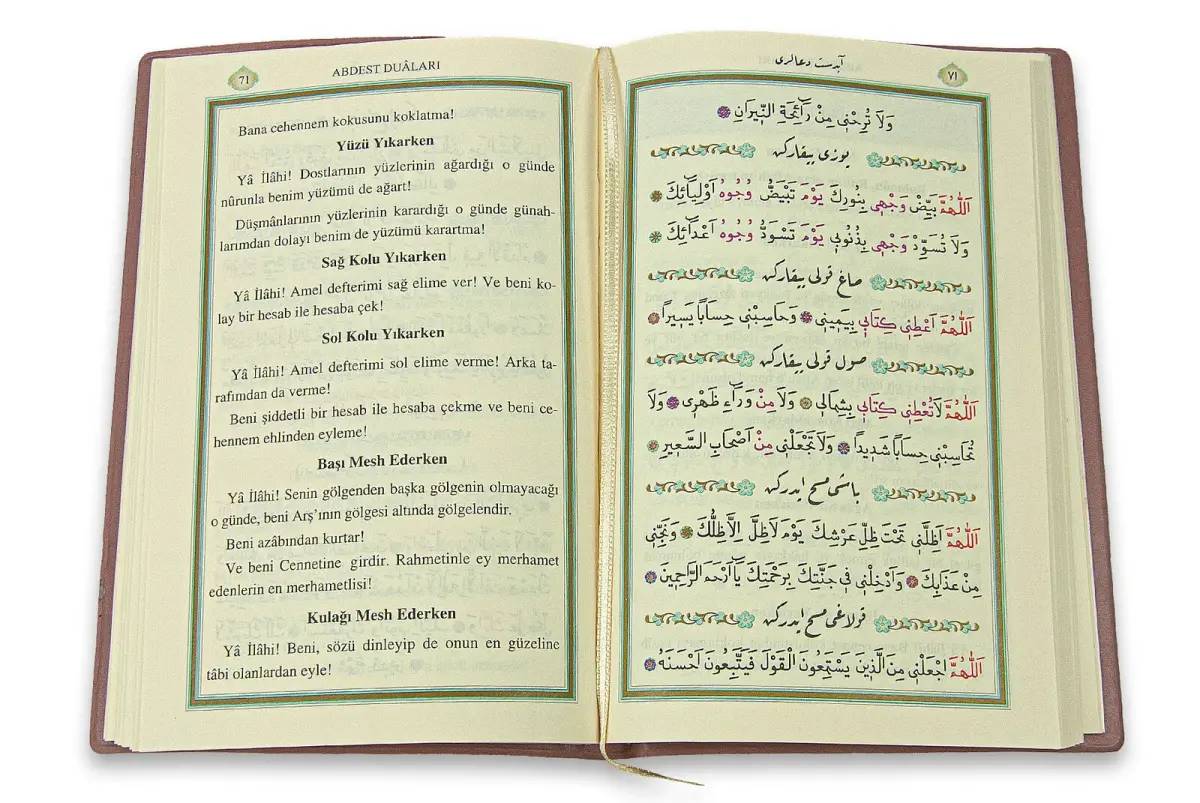 71
ABDEST DUÂLARI
Bana cehennem kokusunu koklatma!
Yüzü Yıkarken
Yâ İlâhi! Dostlarının yüzlerinin ağardığı o günde
nûrunla benim yüzümü de ağart!
Düşmânlarının yüzlerinin karardığı o günde günah-
larımdan dolayı benim de yüzümü karartma!
Sağ Kolu Yıkarken
Yâ İlâhi! Amel defterimi sağ elime ver! Ve beni ko-
lay bir hesab ile hesaba çek!
Sol Kolu Yıkarken
Yâ İlâhi! Amel defterimi sol elime verme! Arka ta-
rafımdan da verme!
Beni şiddetli bir hesab ile hesaba çekme ve beni ce-
hennem ehlinden eyleme!
Başı Mesh Ederken
Yâ İlâhi! Senin gölgenden başka gölgenin olmayacağı
o günde, beni Arş’ının gölgesi altında gölgelendir.
Beni azâbından kurtar!
Ve beni Cennetine girdir. Rahmetinle ey merhamet
edenlerin en merhametlisi!
Kulağı Mesh Ederken
Yâ İlâhi! Beni, sözü dinleyip de onun en güzeline
tâbi olanlardan eyle!
آبدست دعالرى
٧١
وَلَا تُرِحْنِي مِنْ رَائِحَةِ النِّيرَانِ
يوزى ييقاركن
اَللّٰهُمَّ بَيِّضْ وَجْهِي بِنُورِكَ يَوْمَ تَبْيَضُّ وُجُوهُ اَوْلِيَائِكَ
وَلَا تُسَوِّدْ وَجْهِي بِذُنُوبِي يَوْمَ تَسْوَدُّ وُجُوهُ اَعْدَائِكَ
صاغ قولى ييقاركن
اَللّٰهُمَّ اَعْطِنِي كِتَابِي بِيَمِينِي وَحَاسِبْنِي حِسَابًا يَسِيرًا
صول قولى ييقاركن
اَللّٰهُمَّ لَا تُعْطِنِي كِتَابِي بِشِمَالِي وَلَا مِنْ وَرَاءِ ظَهْرِي وَلَا
تُحَاسِبْنِي حِسَابًا شَدِيدًا وَلَا تَجْعَلْنِي مِنْ اَصْحَابِ السَّعِيرِ
باشى مسح ايدركن
اَللّٰهُمَّ اَظِلَّنِي تَحْتَ ظِلِّ عَرْشِكَ يَوْمَ لَا ظِلَّ اِلَّا ظِلُّكَ وَنَجِّنِي
مِنْ عَذَابِكَ وَاَدْخِلْنِي فِي جَنَّتِكَ بِرَحْمَتِكَ يَا اَرْحَمَ الرَّاحِمِينَ
قولاغى مسح ايدركن
اَللّٰهُمَّ اجْعَلْنِي مِنَ الَّذِينَ يَسْتَمِعُونَ الْقَوْلَ فَيَتَّبِعُونَ اَحْسَنَهُ